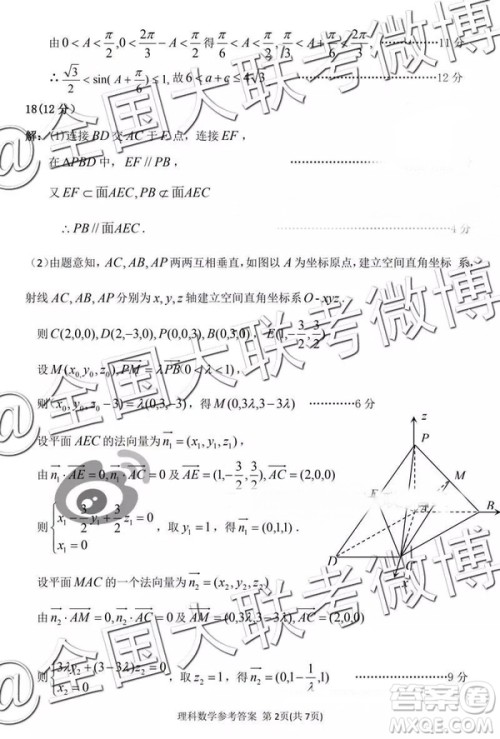 由0<A<π/2,0<2π/3−A<π/2 得π/6<A<π/2,π/3<A+π/6<2π/3 ……11分
∴√3/2<sin(A+π/6)≤1,故6<a+c≤4√3 ……12分
18(12分)
解:(1)连接BD交AC于F点,连接EF,
在△PBD中, EF//PB, ……
又EF⊂面AEC,PB⊄面AEC
∴PB//面AEC. ……4分
(2)由题意知, AC,AB,AP两两互相垂直,如图以A为坐标原点,建立空间直角坐标 系,
射线AC,AB,AP分别为x,y,z轴建立空间直角坐标系O-xyz.
则C(2,0,0),D(2,−3,0),P(0,0,3),B(0,3,0), E(1,−3/2,3/2)
设M(x₀,y₀,z₀),PM=λPB(0<λ<1),
则(x₀,y₀,z₀−3)=λ(0,3,−3),得M(0,3λ,3−3λ) ……6分
设平面AEC的法向量为n₁=(x₁,y₁,z₁),
由n₁·AE=0,n₁·AC=0及AE=(1,−3/2,3/2),AC=(2,0,0)
则{x₁−3/2y₁+3/2z₁=0 x₁=0 ,取y₁=1,得n₁=(0,1,1).
设平面MAC的一个法向量为n₂=(x₂,y₂,z₂)
由n₂·AM=0,n₂·AC=0及AM=(0,3λ,3−3λ),AC=(2,0,0)
则{3λy₂+(3−3λ)z₂=0 ,取z₂=1,得n₂=(0,1−1/λ,1) ……9分
z
P
M
E
B
D
C
x
理科数学参考答案 第2页(共7页)
@全国大联考微博
@全国大联考微博